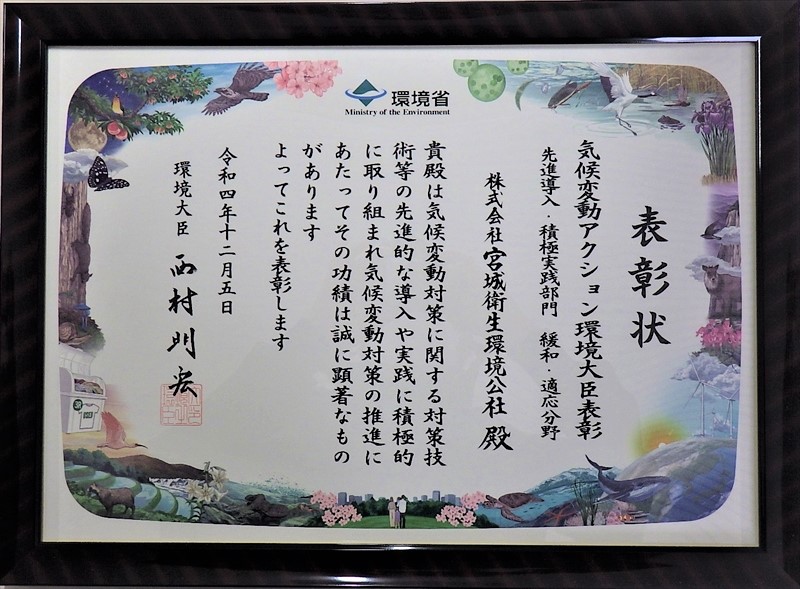 環境省
Ministry of the Environment
表彰状
気候変動アクション環境大臣表彰
先進導入・積極実践部門 緩和・適応分野
株式会社宮城衛生環境公社 殿
貴殿は気候変動対策に関する対策技
術等の先進的な導入や実践に積極的
に取り組まれ気候変動対策の推進に
あたってその功績は誠に顕著なもの
があります
よってこれを表彰します
令和四年十二月五日
環境大臣 西村明宏